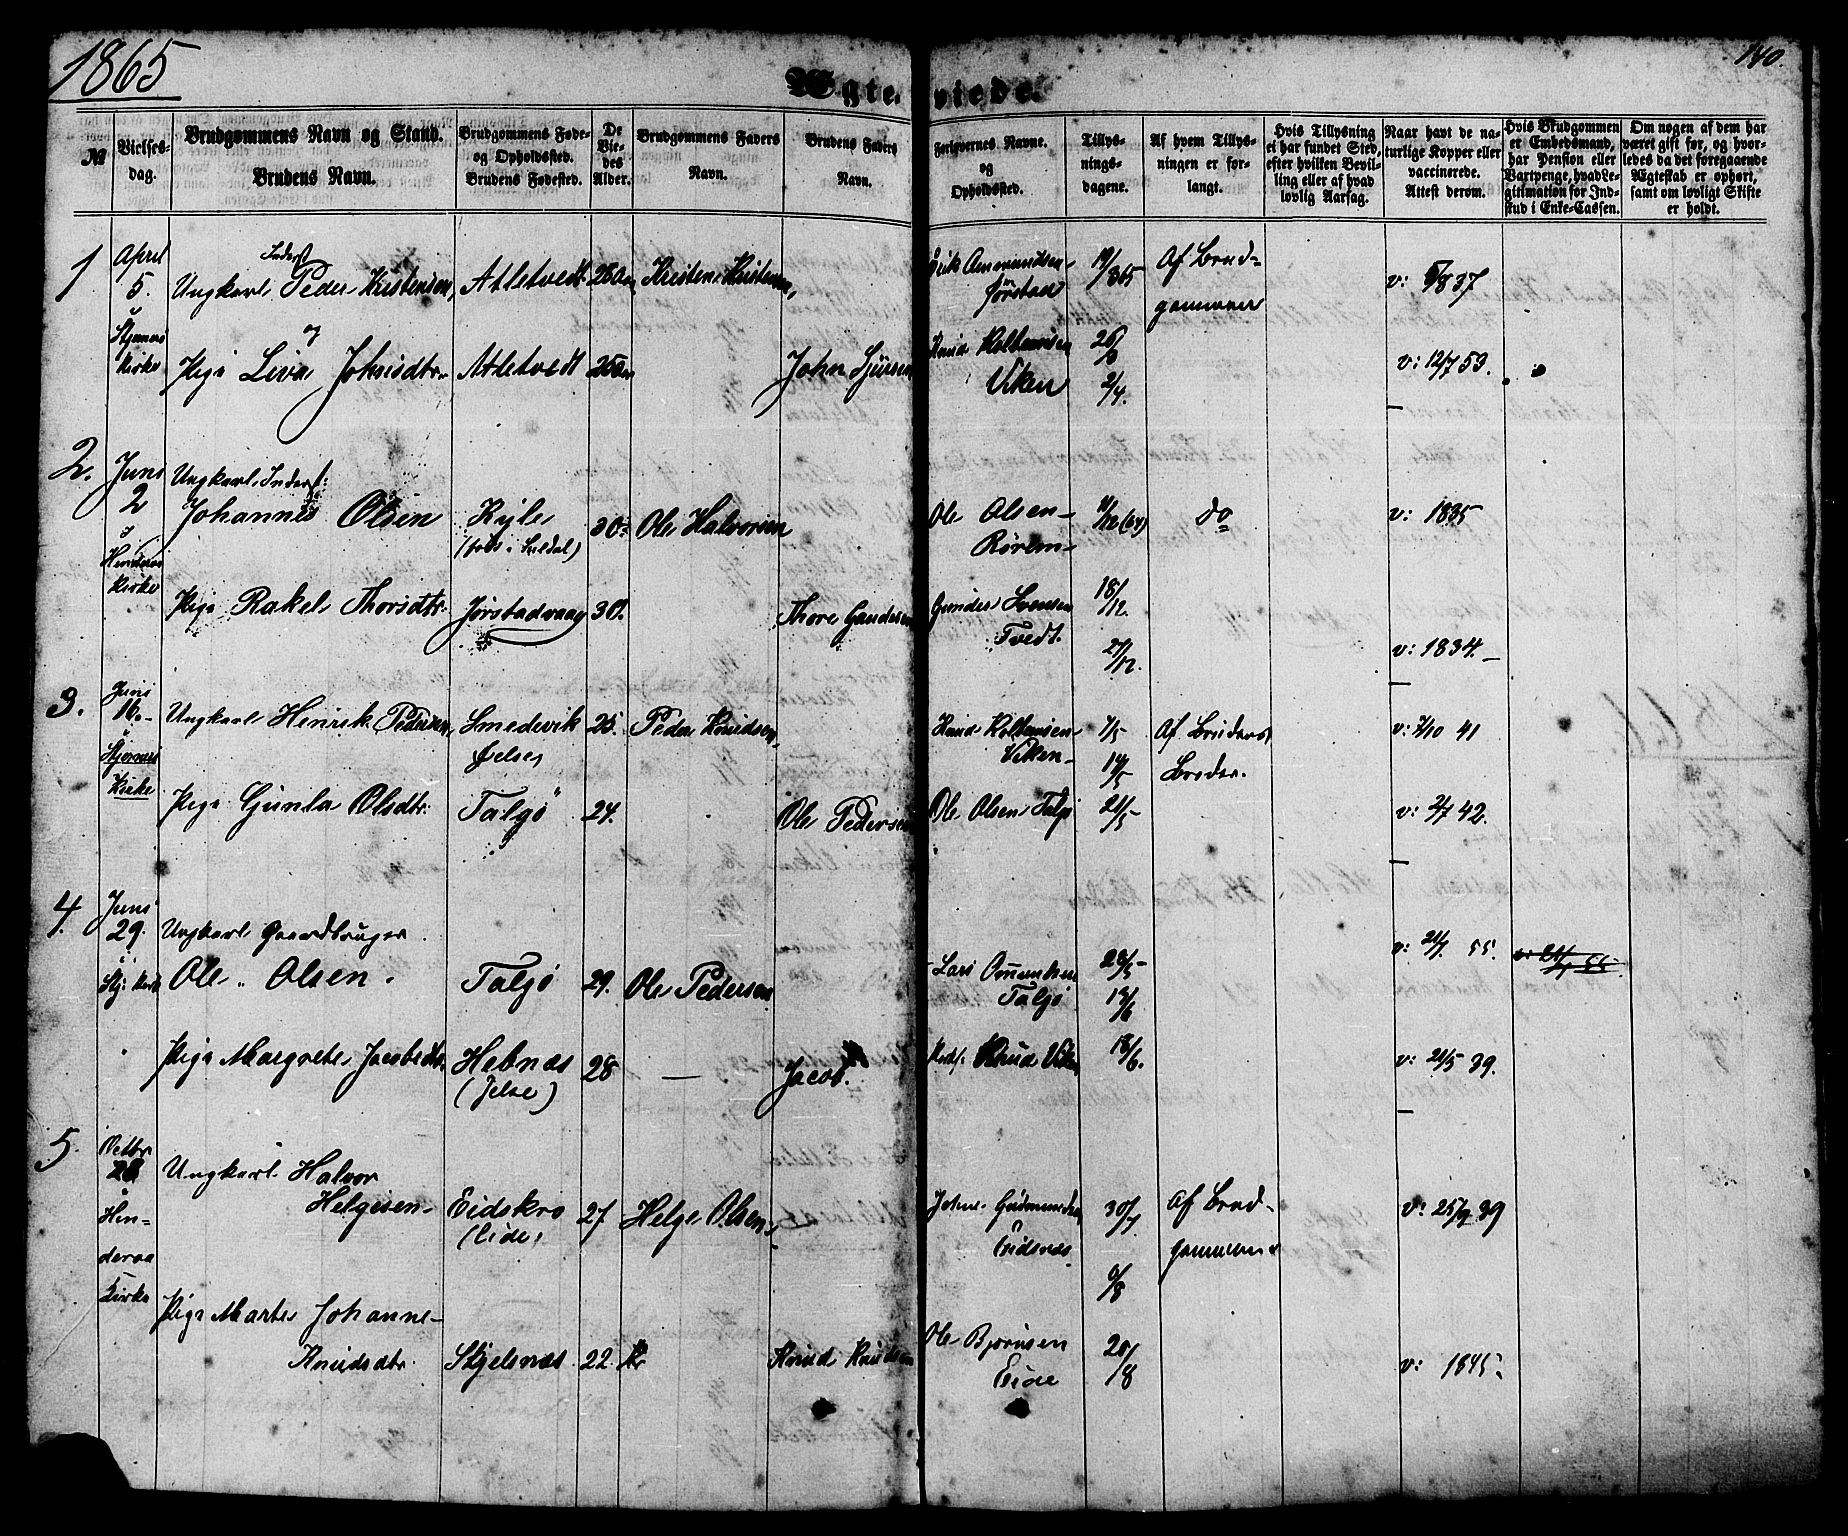 1865
140.
Ægte- viede.
№
Vielses-dag.
Brudgommens Navn og Stand.
Brudens Navn.
Brudgommens Føde- og Opholdssted.
Brudens Fødested.
De Viedes Alder.
Brudgommens Faders Navn.
Brudens Faders Navn.
Forlovernes Navne. og Opholdssted.
Tillysningsdagene.
Af hvem Tillysningen er forlangt.
Hvis Tillysning ei har fundet Sted, efter hvilken Bevilling eller af hvad lovlig Aarsag.
Naar havt de naturlige Kopper eller vaccinerede. Attest derom.
Hvis Brudgommen er Embedsmand, har Pension eller Vartpenge, hvad Legitimation for Indskud i Enke-Cassen.
Om nogen af dem har været gift før, og hvorledes da det foregaaende Ægteskab er ophørt, samt om lovligt Skifte er holdt.
1
April 5.
Kirke
Inderst
Ungkarl Peder Kristensen, Atletvedt
Kristen Kristensen,
Erik Amundsen Jørstad
19/3 65
Af Brudgommen
v: 5/8 37
Pige Liva Johnsdtr. Atletvedt
John Sjursen
Knud Viken
26/3
2/4.
v: 12/7 53.
2.
Juni 2
Kirke
Ungkarl Inderst:
Johannes Olsen
30
Ole Halvorsen
Ole Olsen Rørem
11/12 (64)
do
v: 1835
Pige Rakel Thorsdtr. Jørstadvaag 30.
Thore Gundersen
Gunder Svensen Tvedt.
18/12.
27/12.
v: 1834.
3.
Juni 16.
Kirke
Ungkarl Henrik Pedersen, Smedevik Jelse, 25. Peder Knudsen,
Knud Viken
7/5
14/5
Af Brudens Broder.
v: 7/10 41
Pige Gunla Olsdtr. Talgø 24.
Ole Pedersen
Ole Olsen Talgø
21/5
v: 2/7 42.
4.
Juni 29.
Ungkarl Gaardbruger
Ole Olsen. Talgø 29. Ole Pedersen
Lars Talgø
28/5
v: 21/7 55.
Pige Margrete Jacobsdtr. Hebnæs (Jelse) 28 —
Jacob.
Knud Viken
18/6.
v: 21/5 39.
5.
Octbr 28
Hinderaa Kirke
Ungkarl Halvor Helgesen Eidskro (Eide) 27 Helge Olsen
Gudmundsen Eidsnæs
30/7.
6/8
Af Brudgommen
v: 25/9 39
Pige Marte Johanne Knudsdtr. Skjelsnæs 22.
Knud Knudsen
Ole Bjørnsen Eide
20/8
v: 1845.